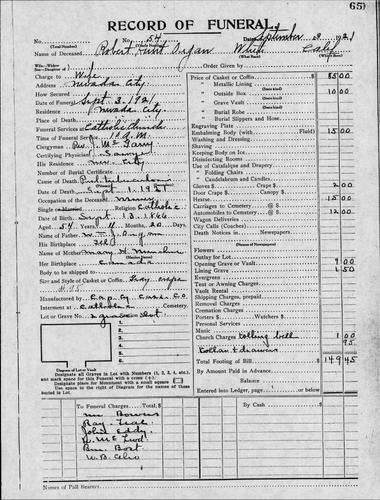 65
RECORD OF FUNERAL
No. 54 Date September 3 1921
(Total Number) (Yearly Number)
Robert Organ White Calif
(Name of Deceased) (What Race) (Where Born)
Charge to Wife Order Given by
Address Nevada City
Date of Funeral Sept. 3, 1921
Place of Death Nevada City
Funeral Services at Catholic Church
Time of Service 10 A.M.
Clergyman Rev. J. McGarry
Certifying Physician
His Residence City
Number of Burial Certificate
Cause of Death
Date of Death Sept. 1. 1921
Occupation of the Deceased Miner
Single or Married Religion Catholic
Date of Birth Sept. 13. 1866
Aged 54 Years 11 Months 20 Days
Name of Father Organ
His Birthplace
Name of Mother Mary
(Maiden Name)
Her Birthplace Canada
Body to be shipped to
Size and Style of Casket or Coffin Gray crepe
# 85
Manufactured by Cal. Cas. Co.
Interment at Catholic Cemetery
Lot or Grave No.
1
2
3
4
5
6
Diagram of Lot or Vault
Designate all Graves in Lot with Numbers (1, 2, 3, 4, etc.) and mark space for this Funeral with a cross (+)
Designate place for Monument with a small square
Use space to right in Diagram for the names of those buried in Lot.
Price of Casket or Coffin $ 85 00
" Metallic Lining
" Outside Box 10 00
" Grave Vault
" Burial Robe
" Burial Slippers and Hose
Engraving Plate
Embalming Body (with Fluid) 15 00
Washing and Dressing
Shaving
Keeping Body on Ice
Disinfecting Rooms
Use of Catafalque and Drapery
" Folding Chairs
" Candelabrum and Candles
Gloves $ Crape $ 2 00
Door Crape $ Canopy $
Hearse 15 00
Carriages to Cemetery @ $
Automobiles to Cemetery @ $ 12 00
Wagon Deliveries
City Calls (Coaches)
Death Notices in Newspapers
(Names of Newspapers)
Flowers
Outlay for Lot
Opening Grave or Vault 9 00
Lining Grave 1 50
Evergreen
Tent or Awning Charges
Vault Rental
Shipping Charges, prepaid
Removal Charges
Cremation Charges
Porters $ Watchers $
Personal Services
Music
Church Charges tolling bell 1 00
Collar & drawers 95
Total Footing of Bill $ 149 45
By Amount Paid in Advance
Balance
Entered into Ledger, page or below
To Funeral Charges $ By Cash $
Mr Bowers
Ray
John Eddy
Names of Pall Bearers